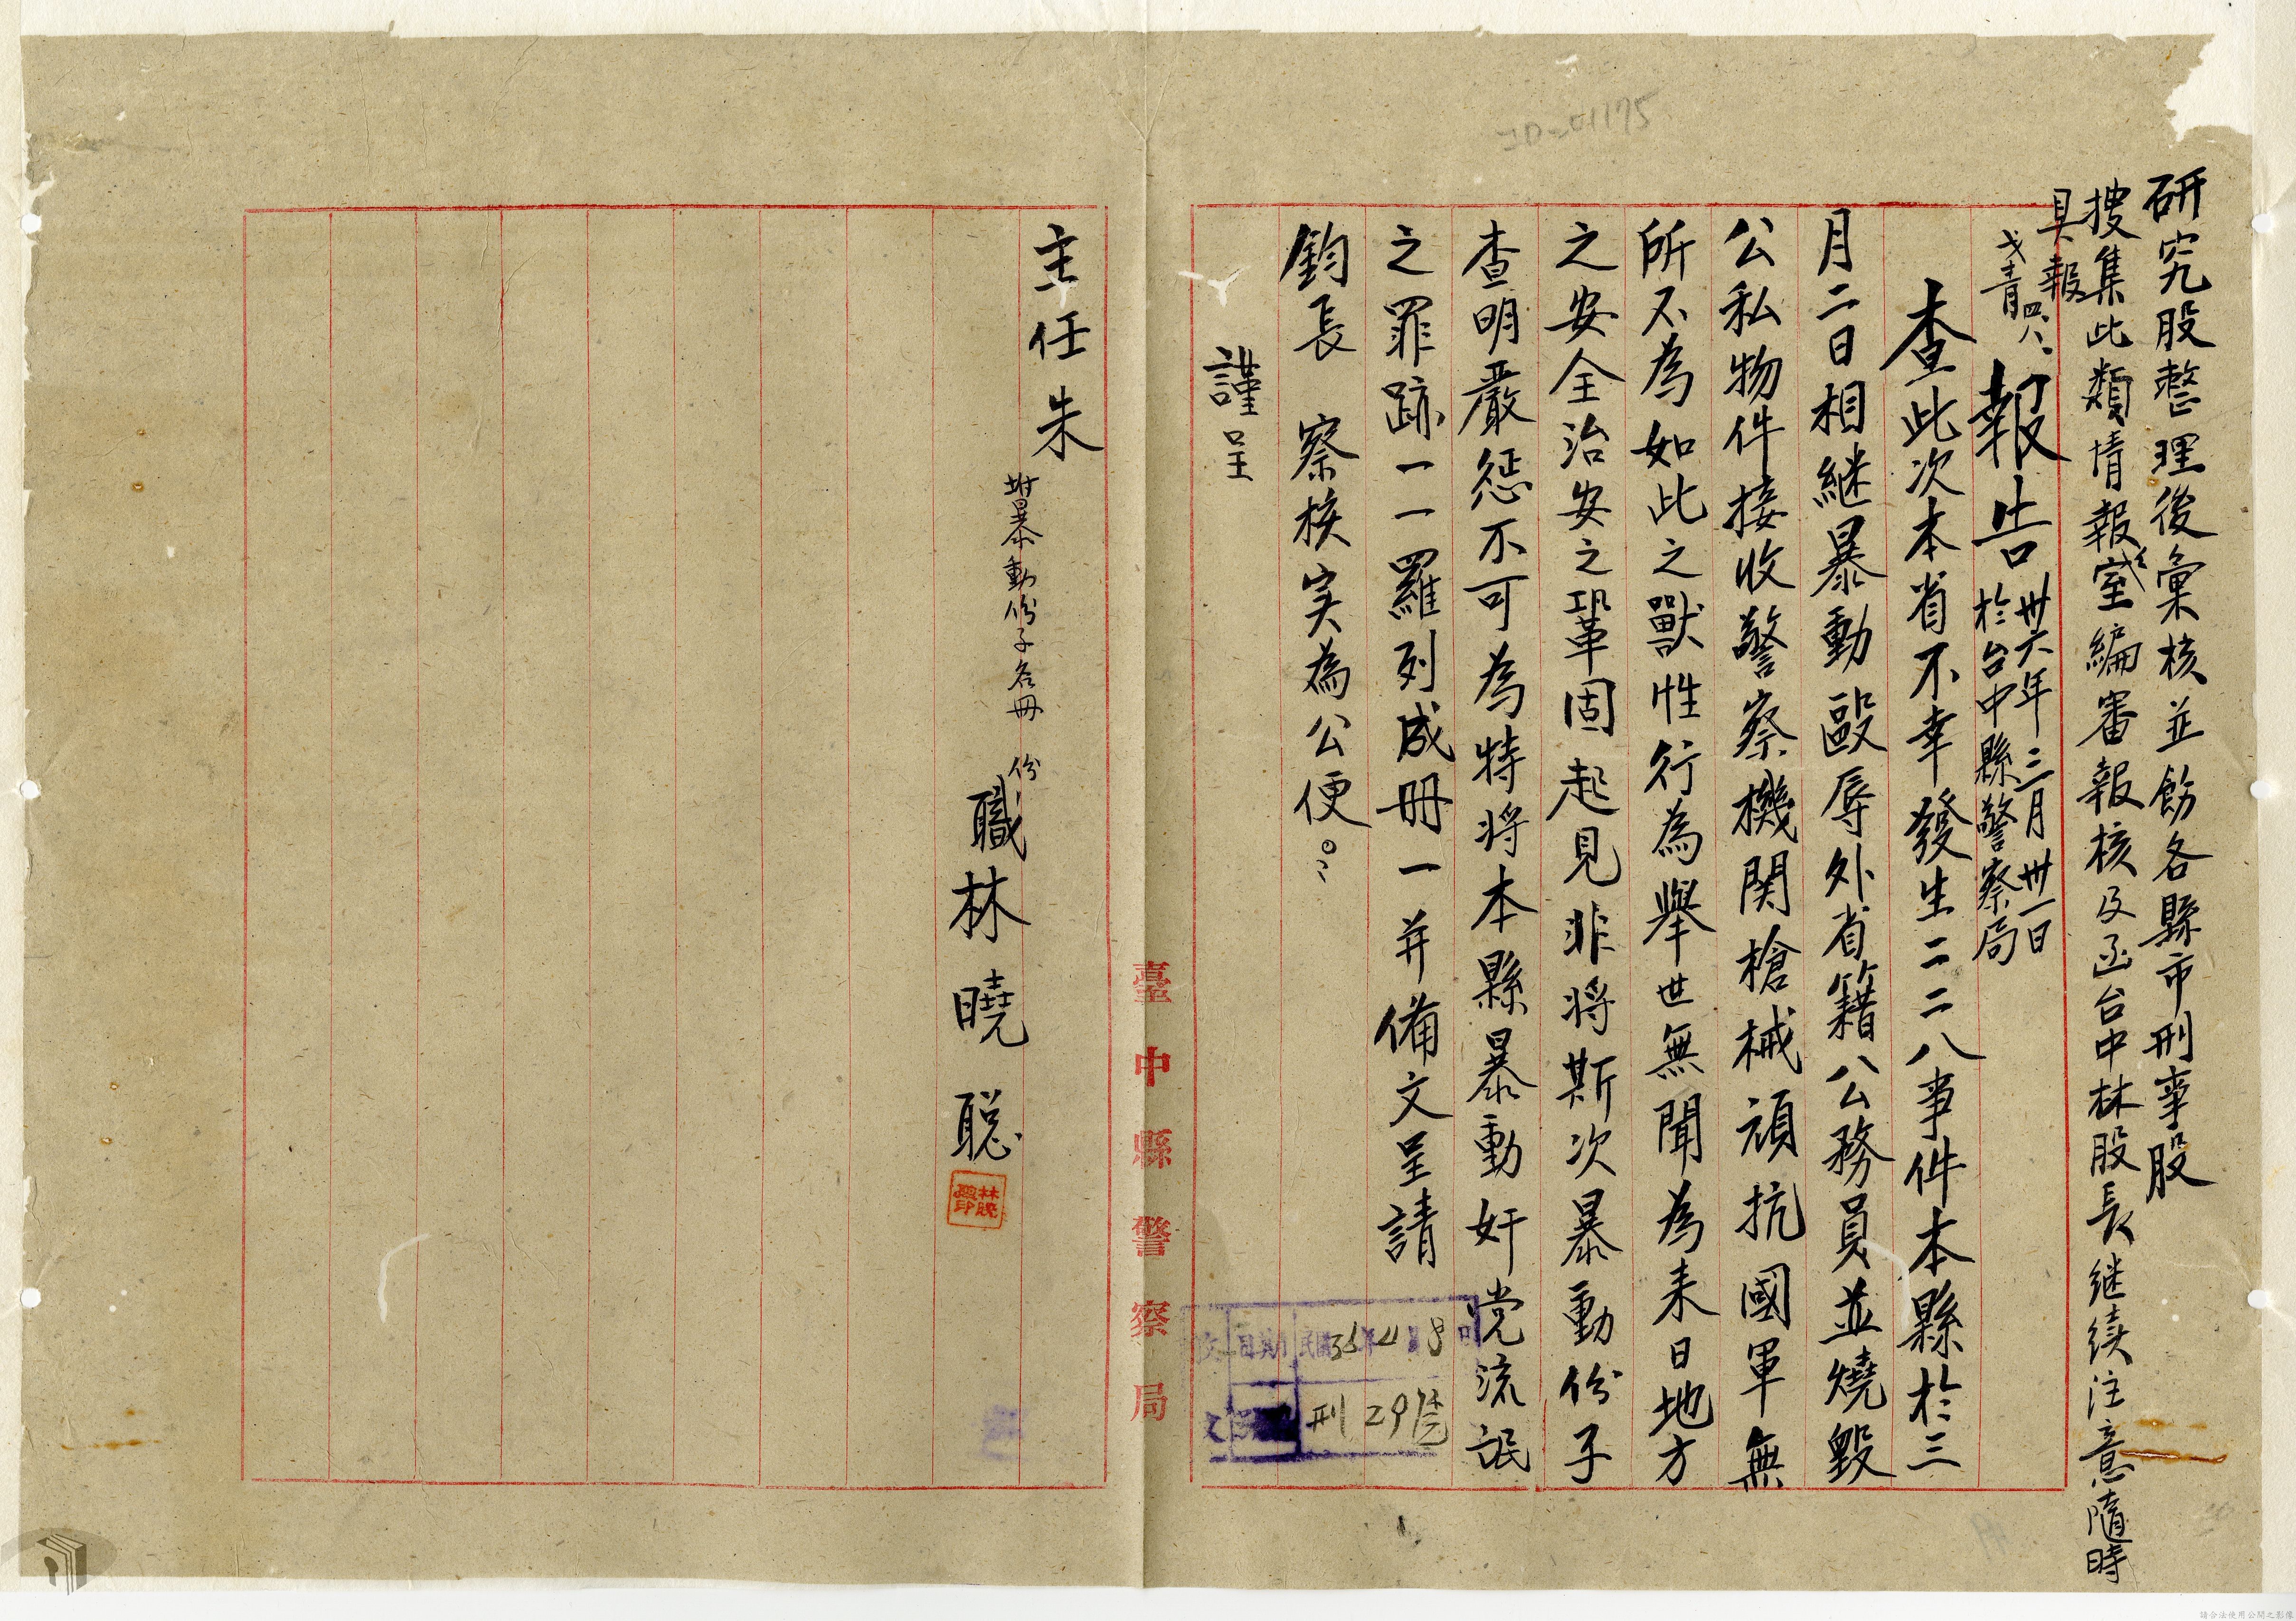 研究股整理後彙核並飭各縣市刑事股
搜集此類情報室編審報核及函台中林股長継续注意隨時
具報
四、八、
報告 卅六年三月卅一日
於台中縣警察局
查此次本省不幸發生二二八事件本縣於三
月二日相継暴動毆辱外省籍公務員並燒毀
公私物件接收警察機関槍械頑抗國軍無
所不為如此之獸性行為舉世無聞為来日地方
之安全治安之鞏固起見非将斯次暴動份子
查明嚴惩不可為特将本縣暴動奸党流氓
之罪跡一一羅列成册一并備文呈請
鈞長 察核実為公便。
謹呈
主任朱
附暴動份子名冊 份
職林曉聡
林曉聰印
臺中縣警察局
收 日期 民國36年4月8日
文 刑 29號
JD-01175
請合法使用公開之影像